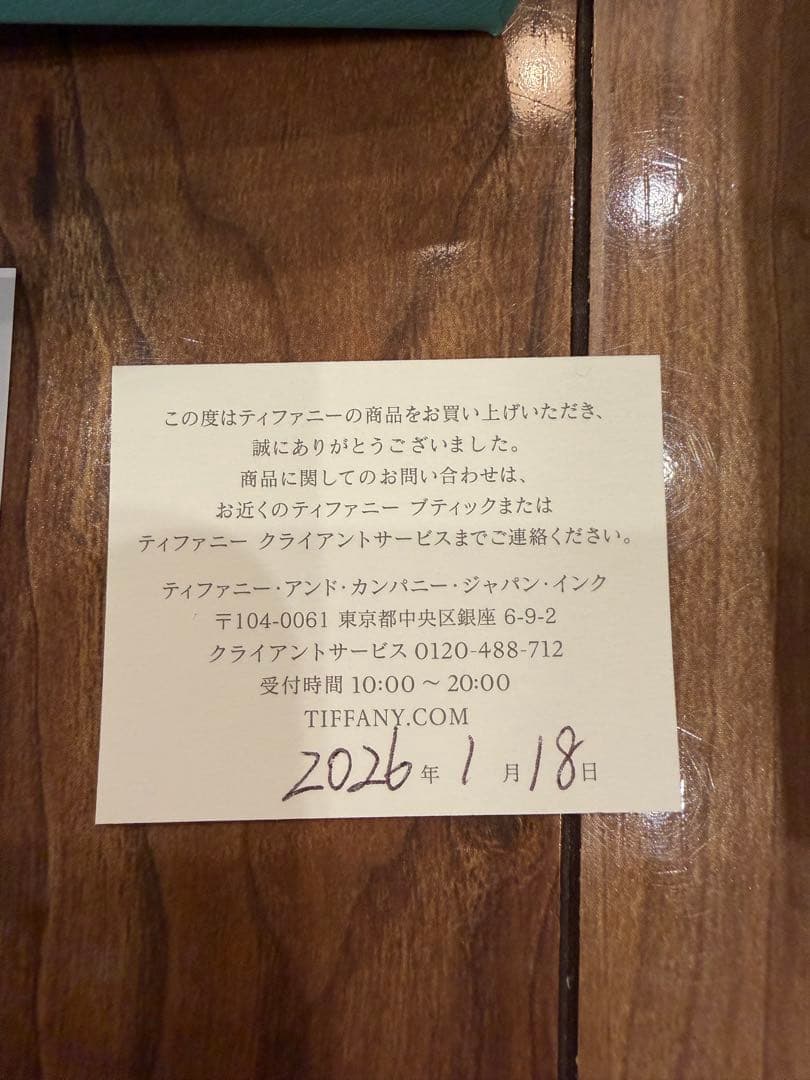 この度はティファニーの商品をお買い上げいただき、
誠にありがとうございました。
商品に関してのお問い合わせは、
お近くのティファニー ブティックまたは
ティファニー クライアントサービスまでご連絡ください。
ティファニー・アンド・カンパニー・ジャパン・インク
〒104-0061 東京都中央区銀座 6-9-2
クライアントサービス 0120-488-712
受付時間 10:00 〜 20:00
TIFFANY.COM
2026年 1月18日